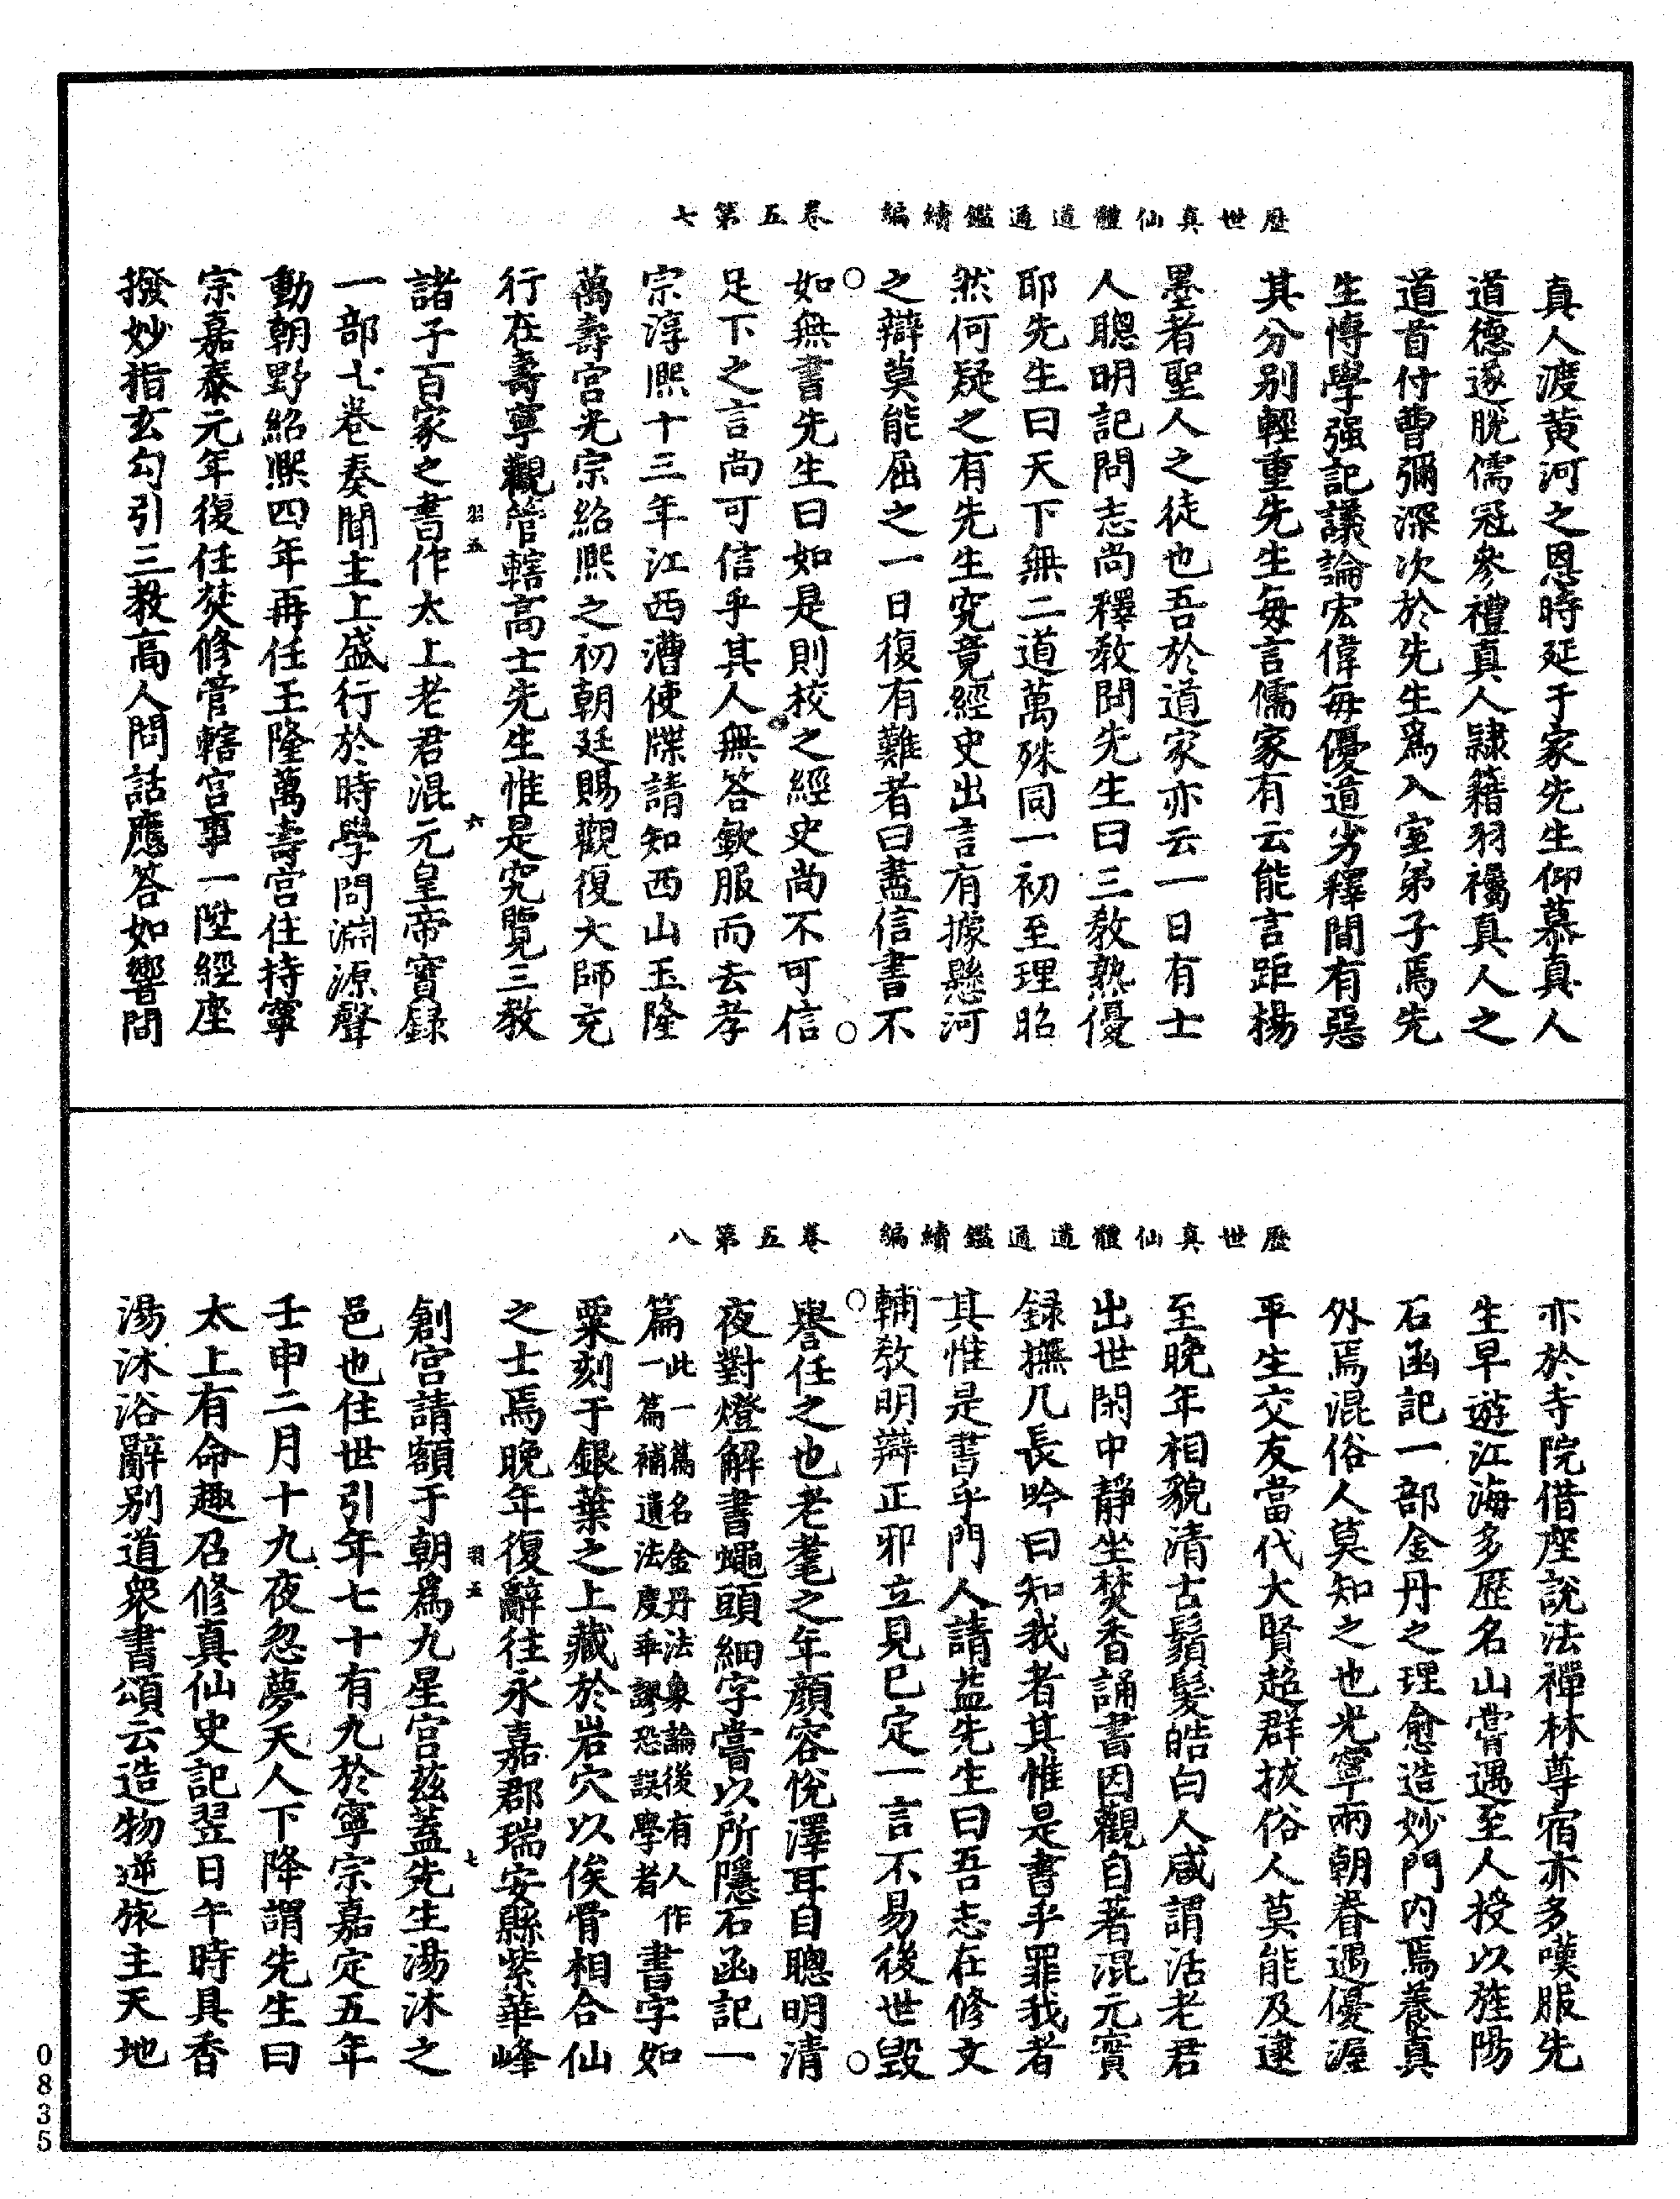 歷世真仙體道通鑑續編　卷五第七
真人渡黃河之恩時延于家先生仰慕真人
道德遂脫儒冠參禮真人隸籍羽襴真人之
道首付曹彌深次於先生爲入室弟子焉先
生博學强記議論宏偉每優道劣釋間有惡
其分别輕重先生每言儒家有云能言距楊
墨者聖人之徒也吾於道家亦云一日有士
人聰明記問志尚釋教問先生曰三教熟優
耶先生曰天下無二道萬殊同一初至理昭
然何疑之有先生究竟經史出言有據懸河
之辯莫能屈之一日復有難者曰盡信書不
如無書先生曰如是則校之經史尚不可信
足下之言尚可信乎其人無答歎服而去孝
宗淳熙十三年江西漕使牒請知西山玉隆
萬壽宮光宗紹熙之初朝廷賜觀復大師充
行在壽寧觀管轄高士先生惟是究覽三教
羽五　六
諸子百家之書作太上老君混元皇帝實録
一部七卷奏聞主上盛行於時學問淵源聲
動朝野紹熙四年再任玉隆萬壽宮住持寧
宗嘉泰元年復任焚修管轄宮事一陞經座
撥妙指玄勾引三教高人問話應答如響間
歷世真仙體道通鑑續編　卷五第八
亦於寺院借座說法禪林尊宿亦多嘆服先
生早遊江海多歷名山嘗遇至人授以旌陽
石函記一部金丹之理愈造妙門内焉養真
外焉混俗人莫知之也光寧兩朝眷遇優渥
平生交友當代大賢超群拔俗人莫能及逮
至晚年相貌清古鬚髮皓白人咸謂活老君
出世閑中靜坐焚香誦書因觀自著混元實
録撫几長吟曰知我者其惟是書乎罪我者
其惟是書乎門人請益先生曰吾志在修文
輔教明辯正邪立見已定一言不易後世毀
譽任之也老耄之年顔容悅澤耳目聰明清
夜對燈解書蠅頭細字嘗以所隱石函記一
篇此一篇名金丹法象論後有人作一篇補遺法度乖謬恐誤學者書字如
粟刻于銀葉之上藏於岩穴以俟骨相合仙
之士焉晚年復辭往永嘉郡瑞安縣紫華峰
羽五　七
創宮請額于朝爲九星宮兹蓋先生湯沐之
邑也住世引年七十有九於寧宗嘉定五年
壬申二月十九夜忽夢天人下降謂先生曰
太上有命趣召修真仙史記翌日午時具香
湯沐浴辭別道衆書頌云造物逆旅主天地
0835